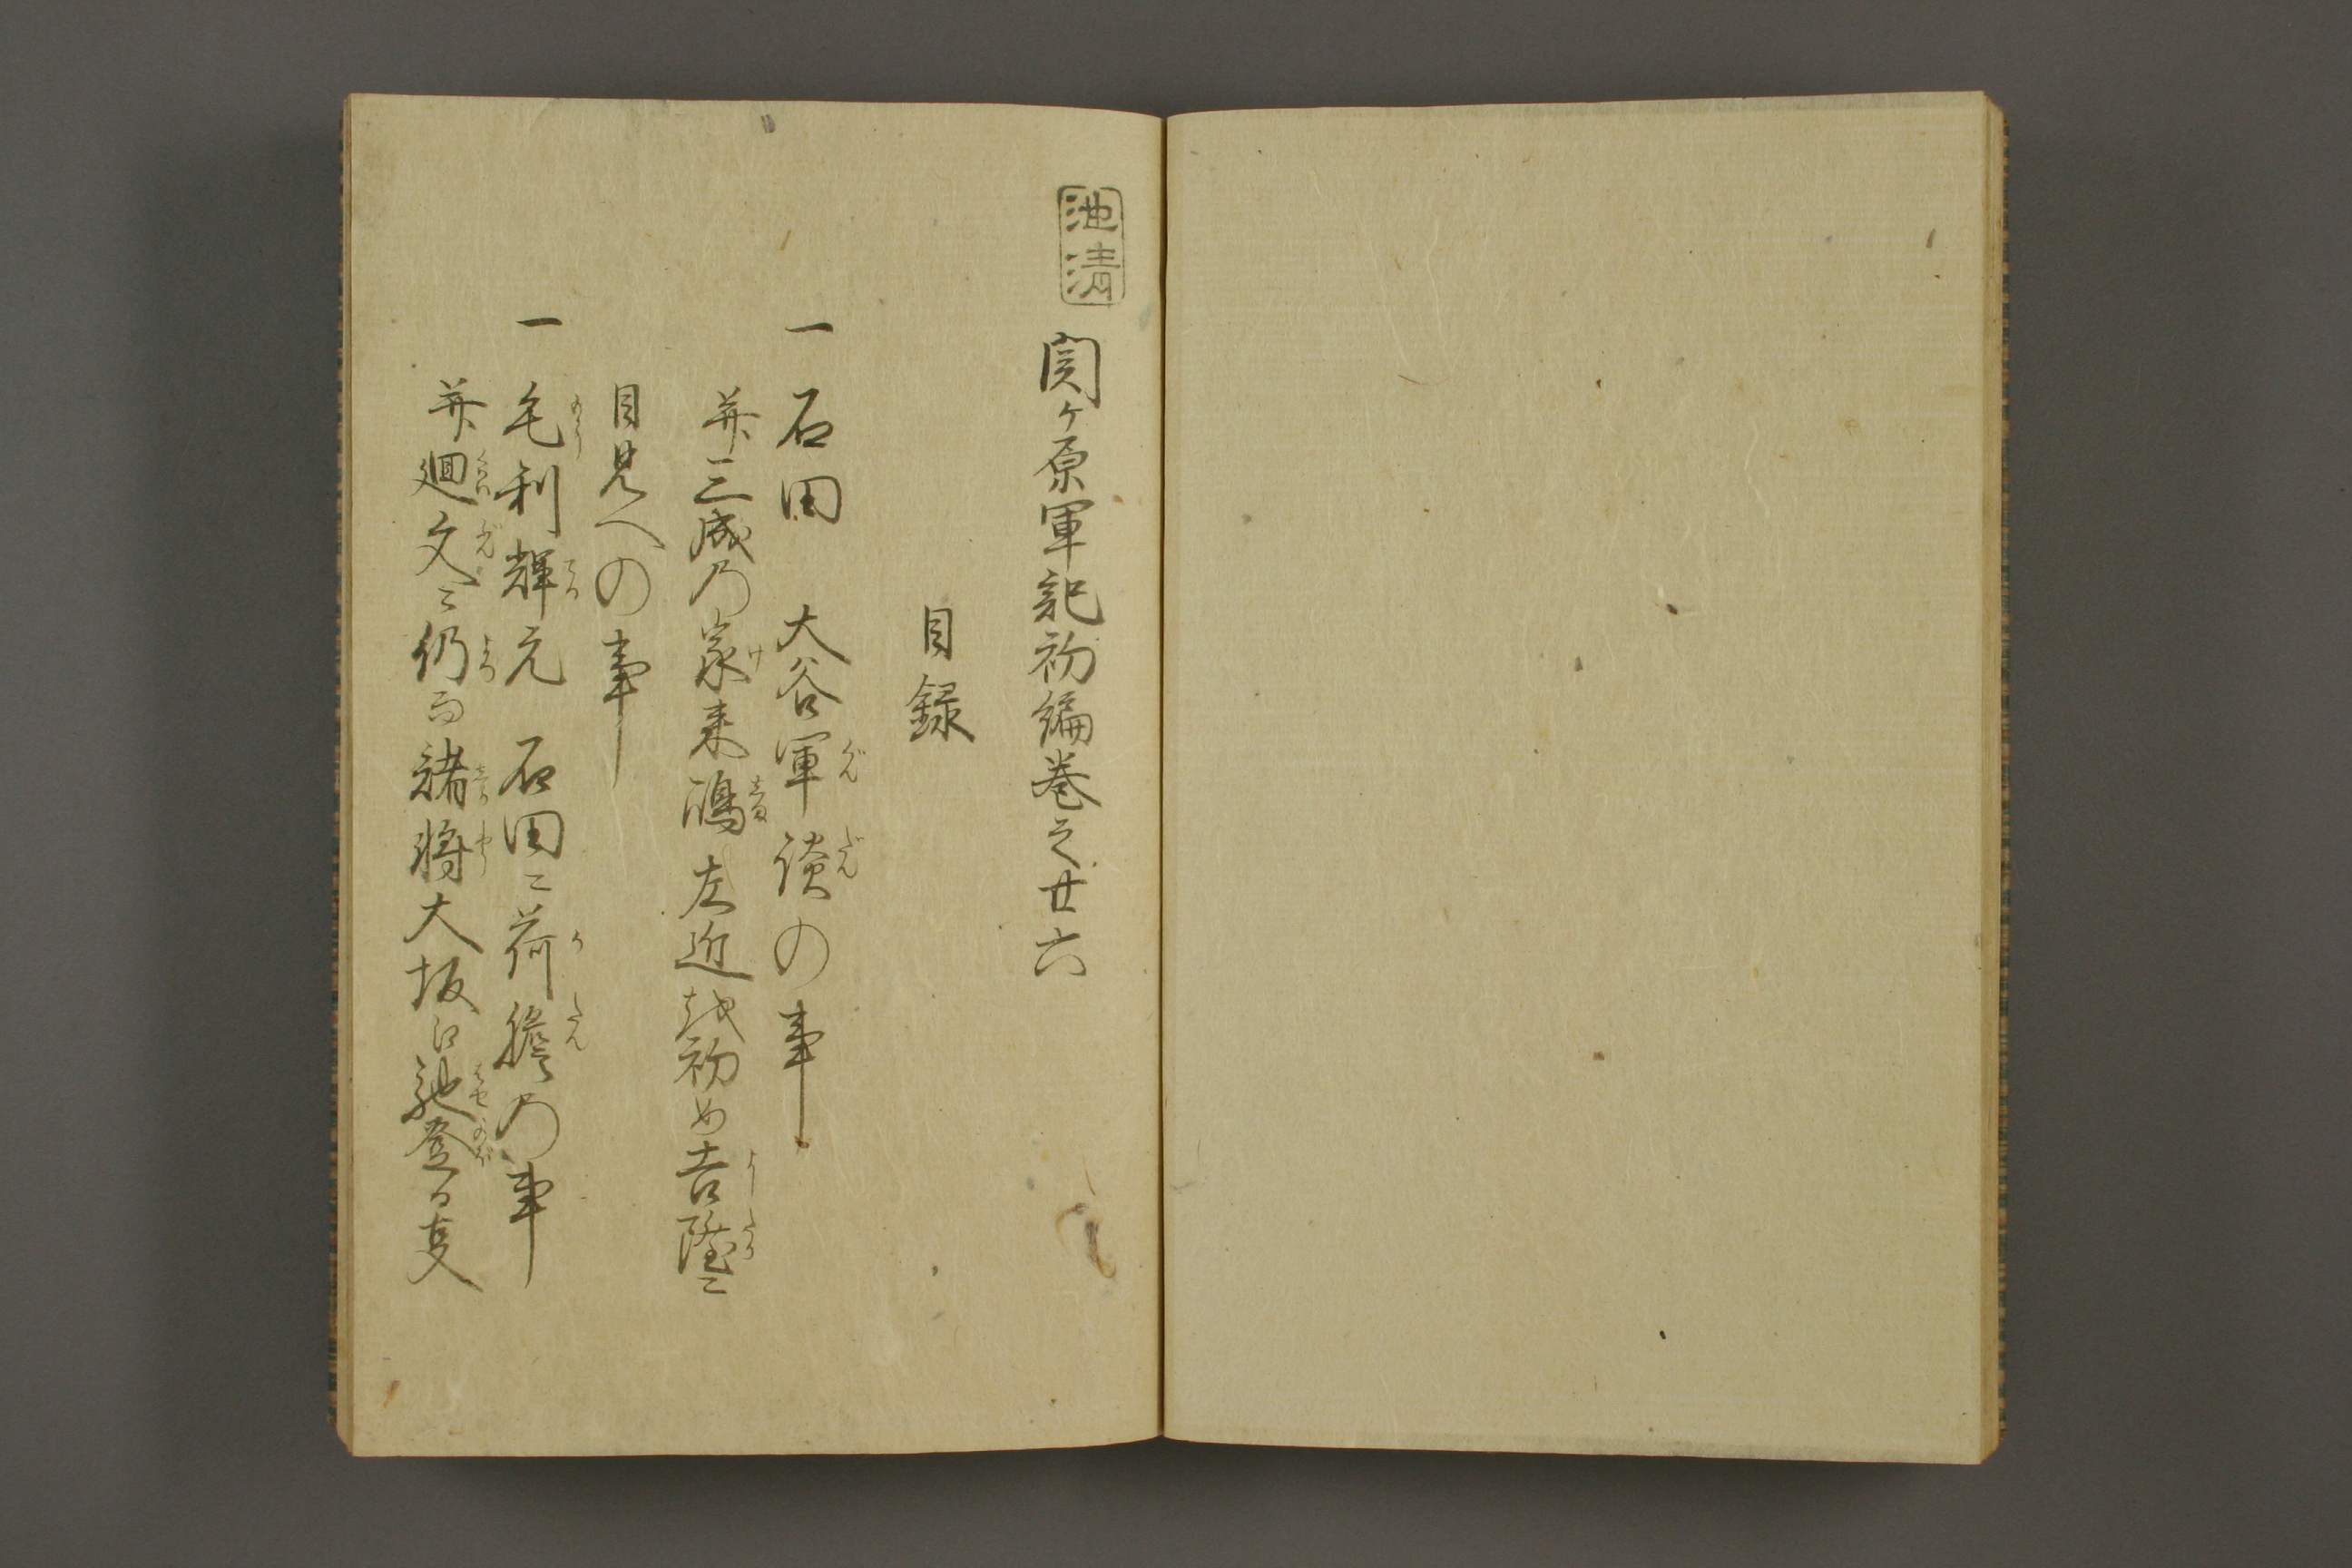 池清
関ヶ原軍記初編巻之廿六
目録
一 石田 大谷軍談の事
并三成乃家来嶋左近越初め吉隆ニ
目見への事
一 毛利輝元 石田ニ荷膽乃事
并廻文ニ仍而諸将大坂江馳登る叓